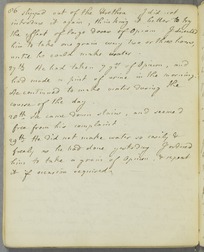 it slipped out of the Urethra I did not
introduce it again, thinking it better to try
the effect of large doses of Opium I directed
him to take one grain every two or three hours,
until he could make water.
27th He had taken 7 grs of Opium, and
had made a pint of urine in the morning
He continued to make water during the
course of the day.
28th He came down stairs, and seemed
free from his complaint.
29th He did not make water so easily &
freely as he had done yesterday I advised
him to take a grain of Opium & repeat
it if occasion required.